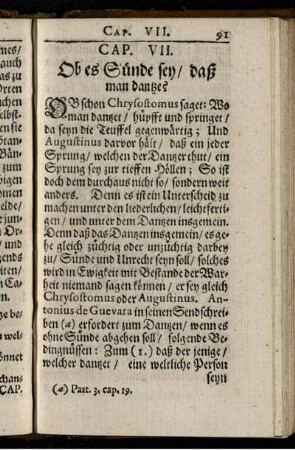 CAP. VII. 91
CAP. VII.
Ob es Sünde sey / daß
man dantze?
OBschon Chrysostomus saget: Wo
man dantzet / hüpfft und springet /
da seyn die Teuffel gegenwärtig; Und
Augustinus darvor hält / daß ein jeder
Sprung / welchen der Dantzer thut / ein
Sprung sey zur tieffen Höllen; So ist
doch dem durchaus nicht so / sondern weit
anders. Denn es ist ein Unterscheid zu
machen unter den liederlichen / leichtferti-
gen / und unter dem Dantzen insgemein.
Denn daß das Dantzen insgemein / es ge-
he gleich züchtig oder unzüchtig darbey
zu / Sünde und Unrecht seyn soll / solches
wird in Ewigkeit mit Bestande der War-
heit niemand sagen können / er sey gleich
Chrysostomus oder Augustinus. An-
tonius de Guevara in seinen Sendschrei-
ben (a) erfordert zum Dantzen / wenn es
ohne Sünde abgehen soll / folgende Be-
dingnüssen: Zum (1.) daß der jenige /
welcher dantzet / eine weltliche Person
seyn
(a) Part. 3. cap. 19.
CAP.